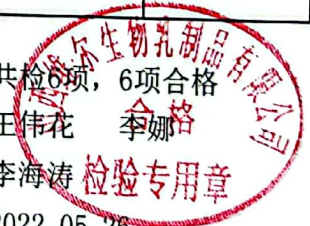 共检6项，6项合格
王伟花 李娜
李海涛
2022.05.26
西维尔生物乳制品有限公司
合格
检验专用章